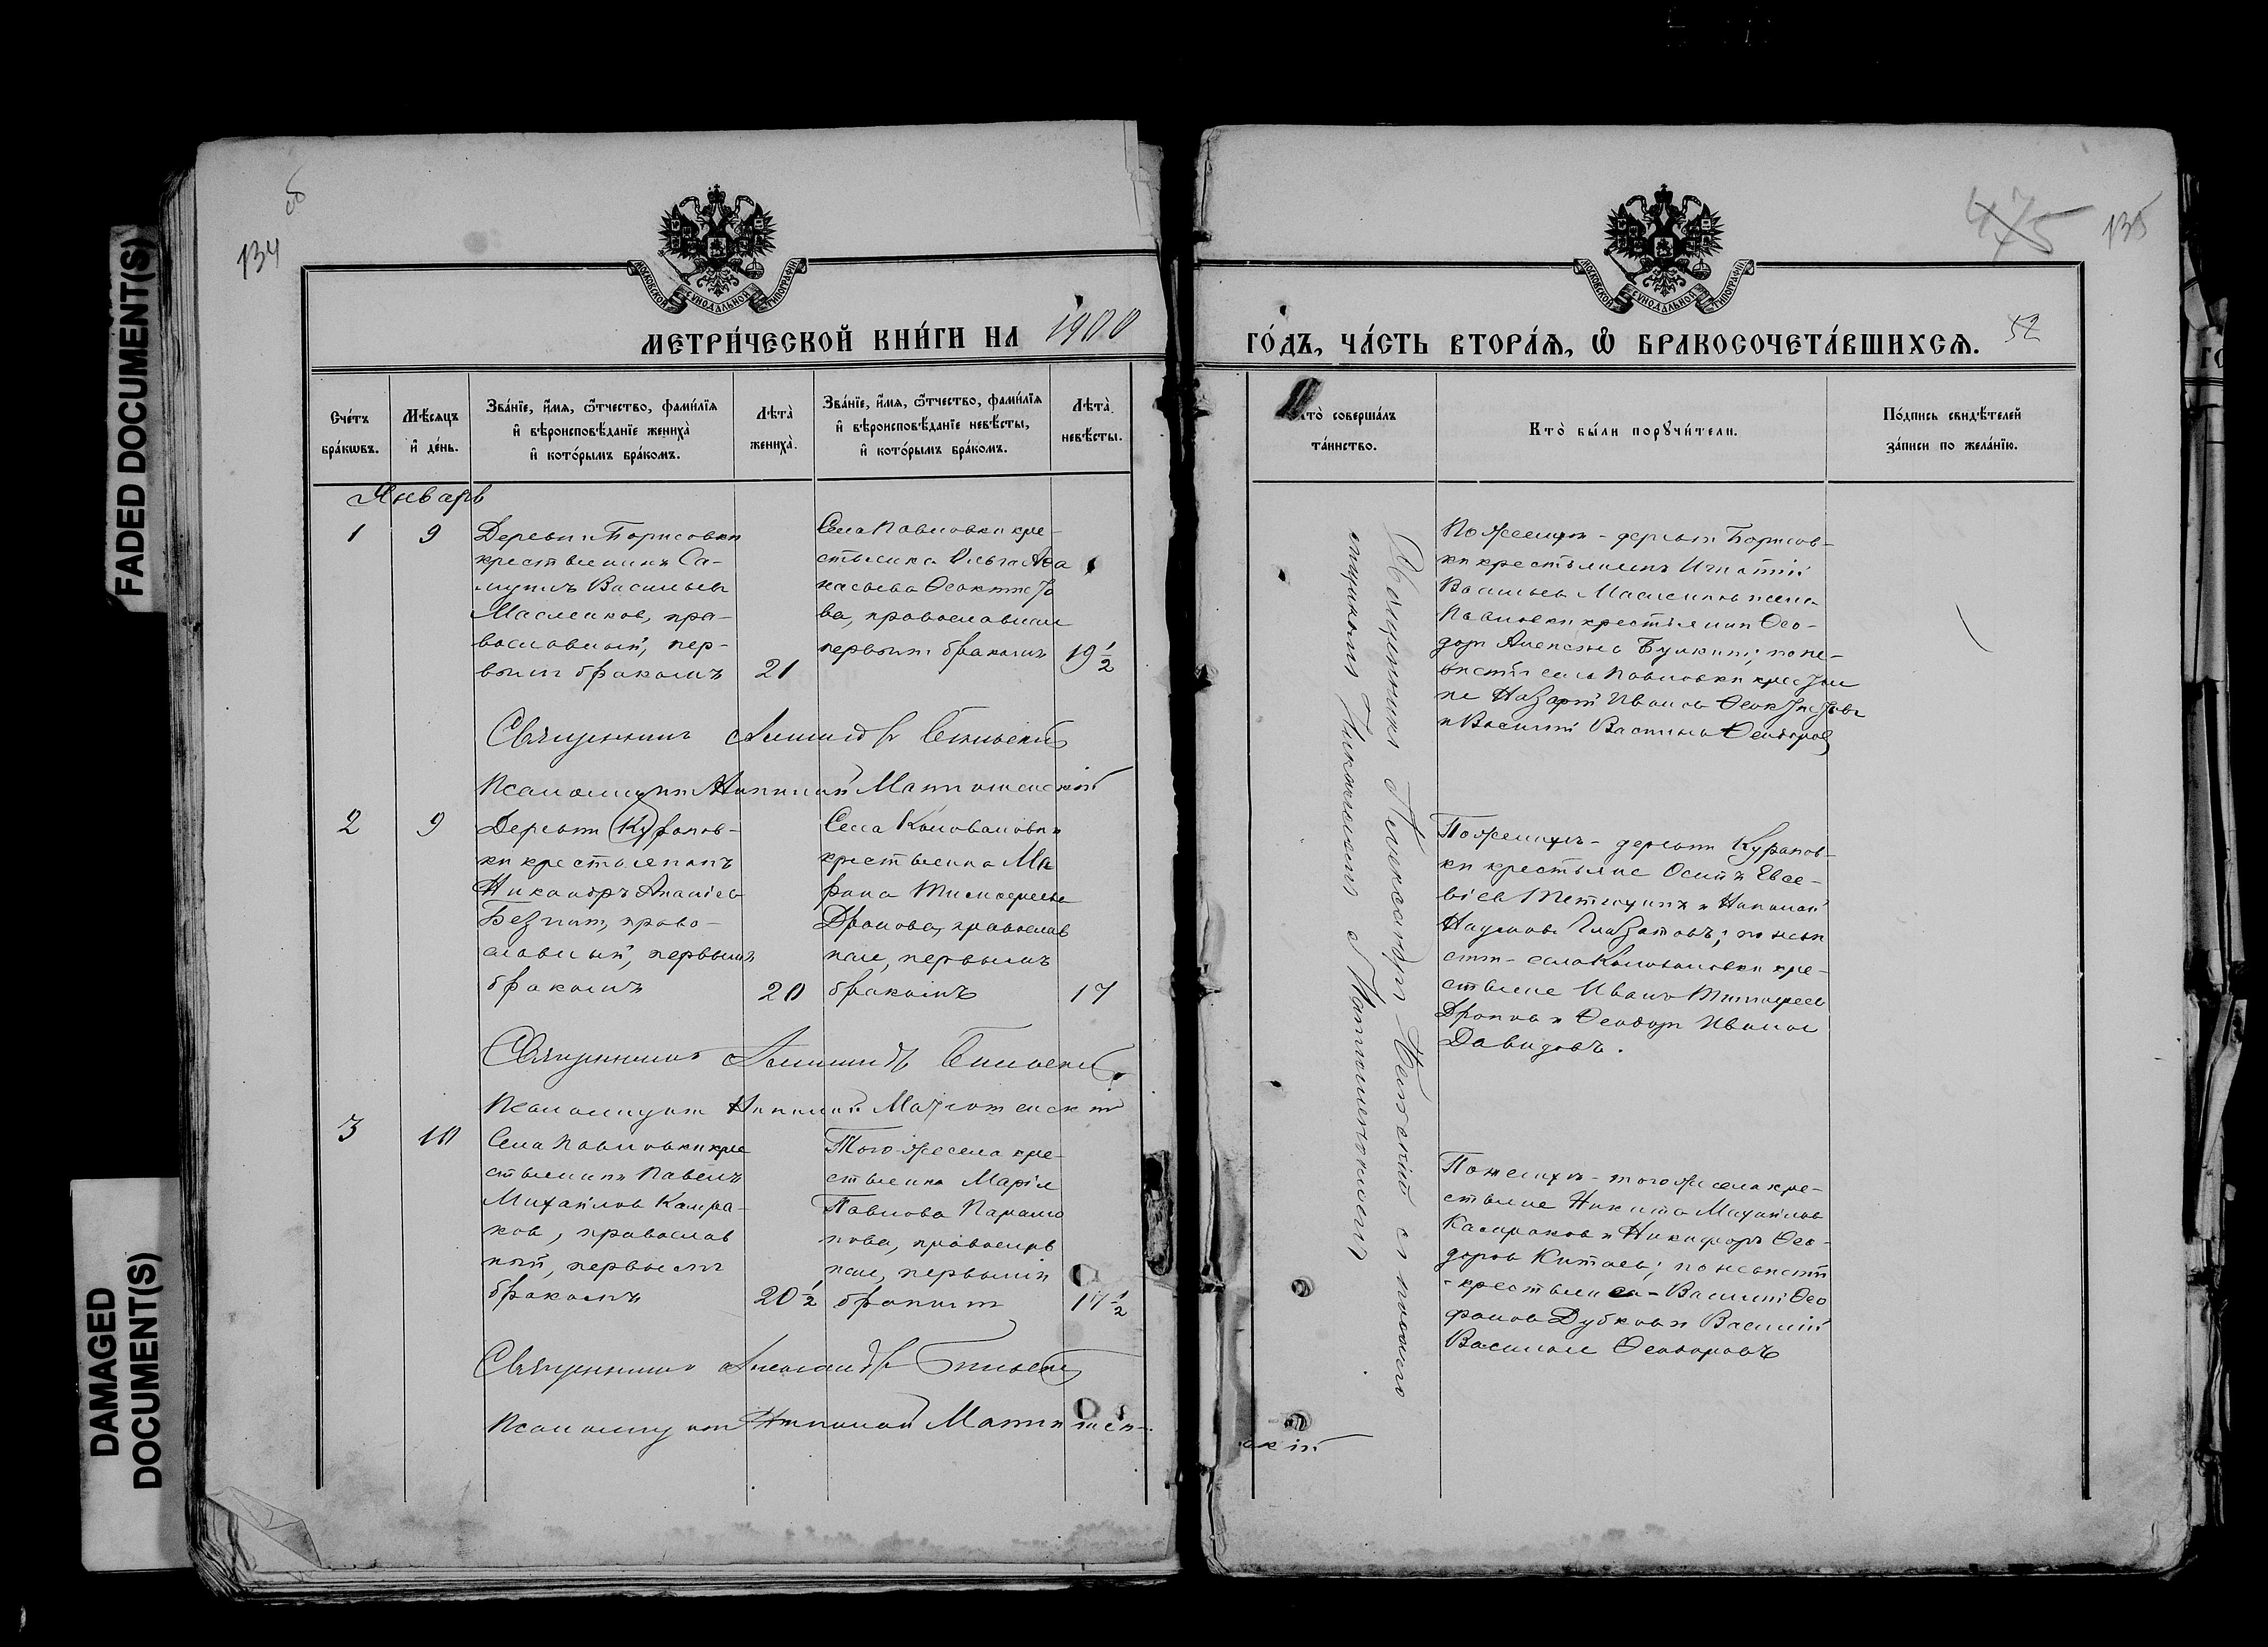 FADED DOCUMENT(S)
DAMAGED
DOCUMENT(S)
об
134
МОСКОВСКОЙ СѴНОДАЛЬНОЙ ТИПОГРАФІИ
МЕТРИ́ЧЕСКОЙ КНИ́ГИ НА 1900
Сче́тъ бра́кѡвъ.
Мѣ́сяцъ и҆ де́нь.
Зва́нїе, и҆́мя, ѻ҆́тчество, фами́лїя
и҆ вѣроисповѣ́данїе жениха̀
и҆ кото́рымъ бра́комъ.
Лѣта̀ жениха̀.
Зва́нїе, и҆́мя, ѻ҆́тчество, фами́лїя
и҆ вѣроисповѣ́данїе невѣ́сты,
и҆ кото́рымъ бра́комъ.
Лѣта̀ невѣ́сты.
Январь
1
9
Деревни Борисовки
крестьянинъ Са-
муилъ Васильев
Маслеников, пра-
вославный, пер-
вымъ бракомъ
21
Села Павловки кре-
стьянка Ольга Аѳа
насьева Ѳеоктисто
ва, православная
первымъ бракомъ
19 1/2
Священникъ Александръ
Псаломщикъ Николай
2
9
Деревни Курапов-
ки крестьянинъ
Никандръ Ананіев
православный, первымъ
бракомъ
20
Села Коноваловки
крестьянка Ма
Тимофеева
Дронова, православ
ная, первымъ
бракомъ
17
Священникъ Александръ
Псаломщикъ Николай
3
10
Села Павловки кре
стьянинъ Павелъ
Михайлов Камра-
ков, православ
ный, первымъ
бракомъ
20 1/2
Того-же села кре-
стьянка Марія
Павлова Парамо
нова, православ
ная, первымъ
бракомъ
17 1/2
Священникъ Александръ
Псаломщикъ Николай
475
135
МОСКОВСКОЙ СѴНОДАЛЬНОЙ ТИПОГРАФІИ
ГО́ДЪ, ЧА́СТЬ ВТОРА́Я, Ѽ БРАКОСОЧЕТА́ВШИХСЯ.
52
Кто̀ соверша́лъ
та́инство.
Кто̀ бы́ли порꙋчи́тели.
По́дпись свидѣ́телей
за́писи по жела́нїю.
Священникъ Александръ съ псало
мщикомъ Николаемъ
По женихѣ - деревни Борисов-
ки крестьяне Игнатій
Васильев Маслеников и села
Павловки крестьянин Ѳео-
дор Алексѣев Булкин; по не-
вѣстѣ села Павловки крестья
не Назарій Иванов Ѳеоктистов
и Василій Васильев Ѳеодоров
По женихѣ - деревни Курапов-
ки крестьяне Осипъ Евсе-
віев и Николай
Наумов; по невѣ
стѣ - села Коноваловки кре-
стьяне Иван Тимофеев
Дронов и Ѳеодор Иванов
Давидовъ.
По женихѣ - того-же села кре-
стьяне Никита Михайлов
Камраков и Никифоръ Ѳео-
доров Китаев; по невѣстѣ
- крестьяне - Василій Ѳео
фанов Дубков и Василій
Васильев Ѳеодоровъ
скій